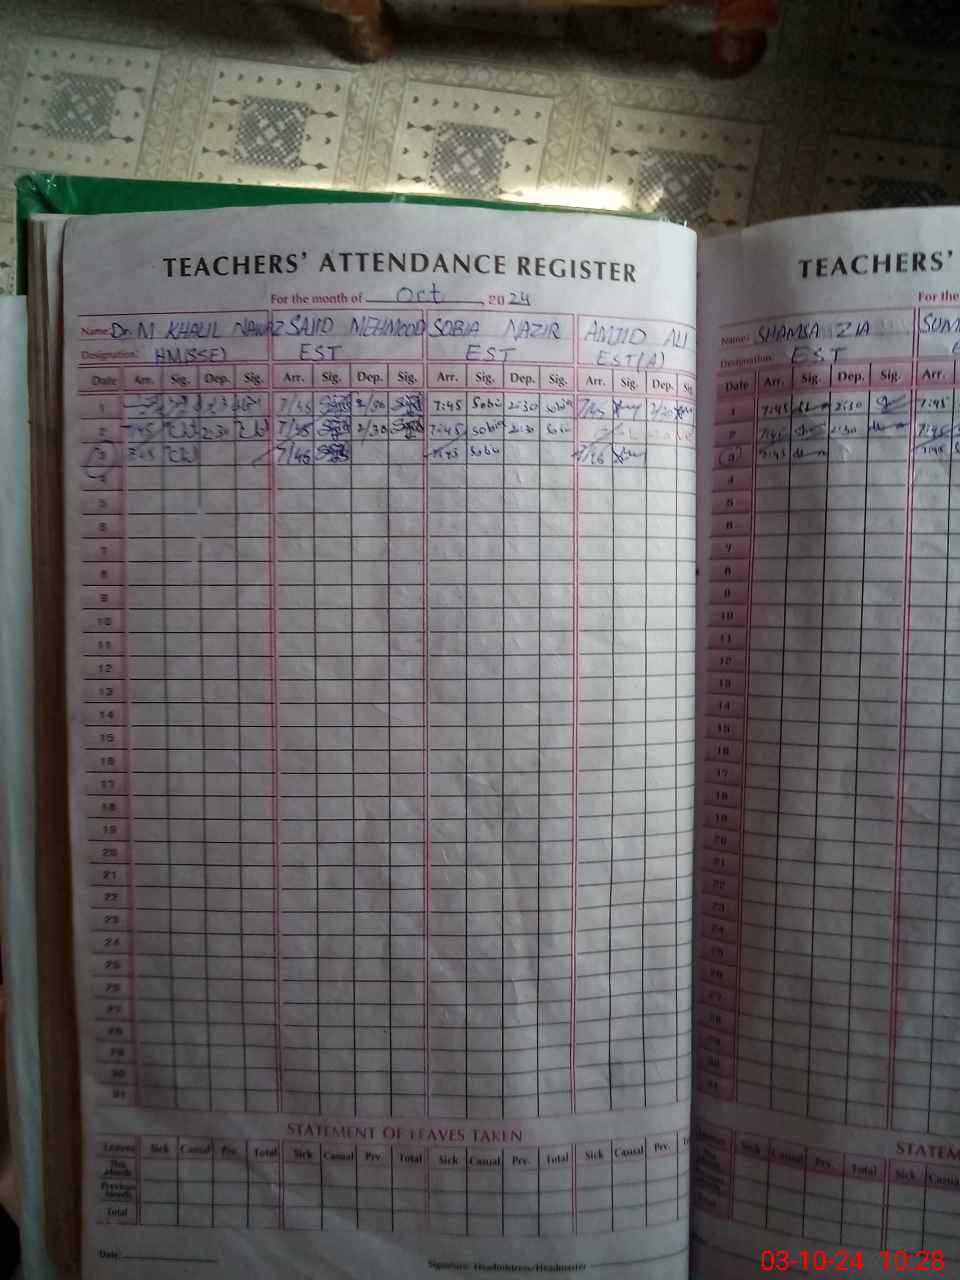 TEACHERS' ATTENDANCE REGISTER
For the month of Oct, 2024
Name: Dr. M KHALIL NAWAZ SAJID MEHMOOD SOBIA NAZIR AMJID ALI
Designation: HM(SSE) EST EST EST(A)
Date Arr. Sig. Dep. Sig. Arr. Sig. Dep. Sig. Arr. Sig. Dep. Sig. Arr. Sig. Dep. Sig
1 7/45 2/30 7:45 Sobi 2:30 Sobia 7/45 2/30
2 7:45 2:30 7/45 2/30 7:45 Sobia 2:30 Sobi Leave
3 7:45 7/45 7:45 Sobi 7/45
4
5
6
7
8
9
10
11
12
13
14
15
16
17
18
19
20
21
22
23
24
25
26
27
28
29
30
31
STATEMENT OF LEAVES TAKEN
Leaves Sick Casual Prv. Total Sick Casual Prv. Total Sick Casual Prv. Total Sick Casual Prv. T
This Month
Previous Month
Total
Date:
Signature: Headmistress/Headmaster
TEACHERS'
For the
Name: SHAMSA ZIA SUM
Designation: EST E
Date Arr. Sig. Dep. Sig. Arr.
1 7:45 2:30 7:45
2 7:45 2:30 7:45
3 7:45 7:45
4
5
6
7
8
9
10
11
12
13
14
15
16
17
18
19
20
21
22
23
24
25
26
27
28
29
30
31
STATEM
Sick Casual Prv. Total Sick Casual
03-10-24 10:28